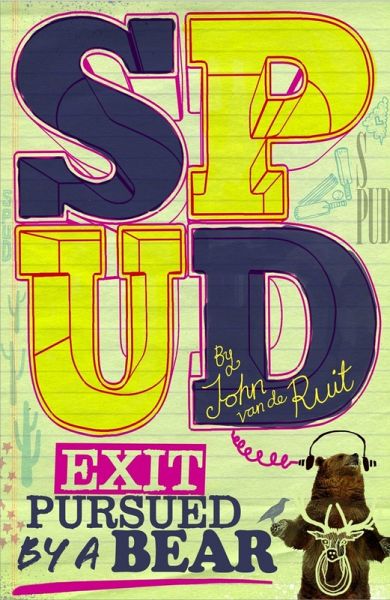 SP
UD
By
John
van de Ruit
EXIT
PURSUED
BY A BEAR
SPUD
S
PUD